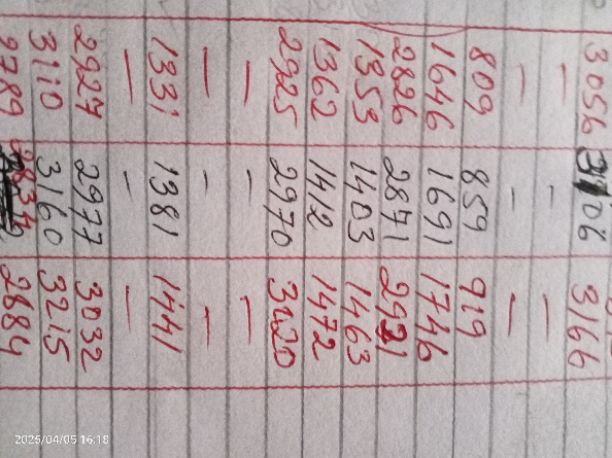 3056 3106 3166
— — —
— — —
809 859 919
1646 1691 1746
2826 2871 2931
1353 1403 1463
1362 1412 1472
2925 2970 3020
— — —
— — —
1331 1381 1441
— — —
2927 2977 3032
3110 3160 3215
2789 2834 2884
2025/04/05 16:18